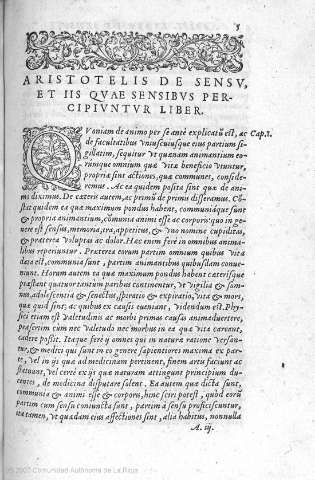 3
ARISTOTELIS DE SENSV,
ET IIS QVAE SENSIBVS PER-
CIPIVNTVR LIBER.
QVoniam de animo per se antè explicatũ est, ac Cap. I.
de facultatibus vniuscuiusque eius partium si-
gillatim, sequitur vt quænam animantium eo-
rumque omnium quæ vitæ beneficio vtuntur,
propriæ sint actiones, quæ communes, conside-
remus. Ac ea quidem posita sint quæ de ani-
mi diximus. De cæteris autem, ac primùm de primis disseramus. Cõ-
stat quidem ea quæ maximum pondus habent, communiáque sunt
& propria animantium, cõmunia animi esse ac corporis: quo in ge-
nere est sensus, memoria, ira, appetitus, & vno nomine cupiditas,
& præterea voluptas ac dolor. Hæc enim ferè in omnibus anima-
libus reperiuntur. Præterea eorum partim omnium quibus vita
data est, communia sunt, partim animantibus quibusdam conue-
niunt. Horum autem ea quæ maximum pondus habent cæterísque
præstant quatuor tantùm paribus continentur, vt vigilia & som-
nus, adolescentia & senectus, spiratio & expiratio, vita & mors,
quæ quid sint, ac quibus ex causis eueniant, videndum est. Phy-
sici etiam est valetudinis ac morbi primas causas animaduertere,
præsertim cùm nec valetudo nec morbus in ea quæ vita careant,
cadere possit. Itaque ferè ij omnes qui in natura ratione versan-
tur, & medici qui sunt in eo genere sapientiores maxima ex par-
te, vel in ijs quæ ad medicinam pertinent, finem artis faciunt ac
statuunt, vel certè ex ijs quæ naturam attingunt principium du-
centes, de medicina disputare solent. Ea autem quæ dicta sunt,
communia & animi esse & corporis, hinc sciri potest, quòd eorũ
partim cum sensu coniuncta sunt, partim à sensu proficiscuntur,
ita tamen, vt quædam eius affectiones sint, alia habitus, nonnulla
A. iij.
© 2007 Comunidad Autónoma de La Rioja